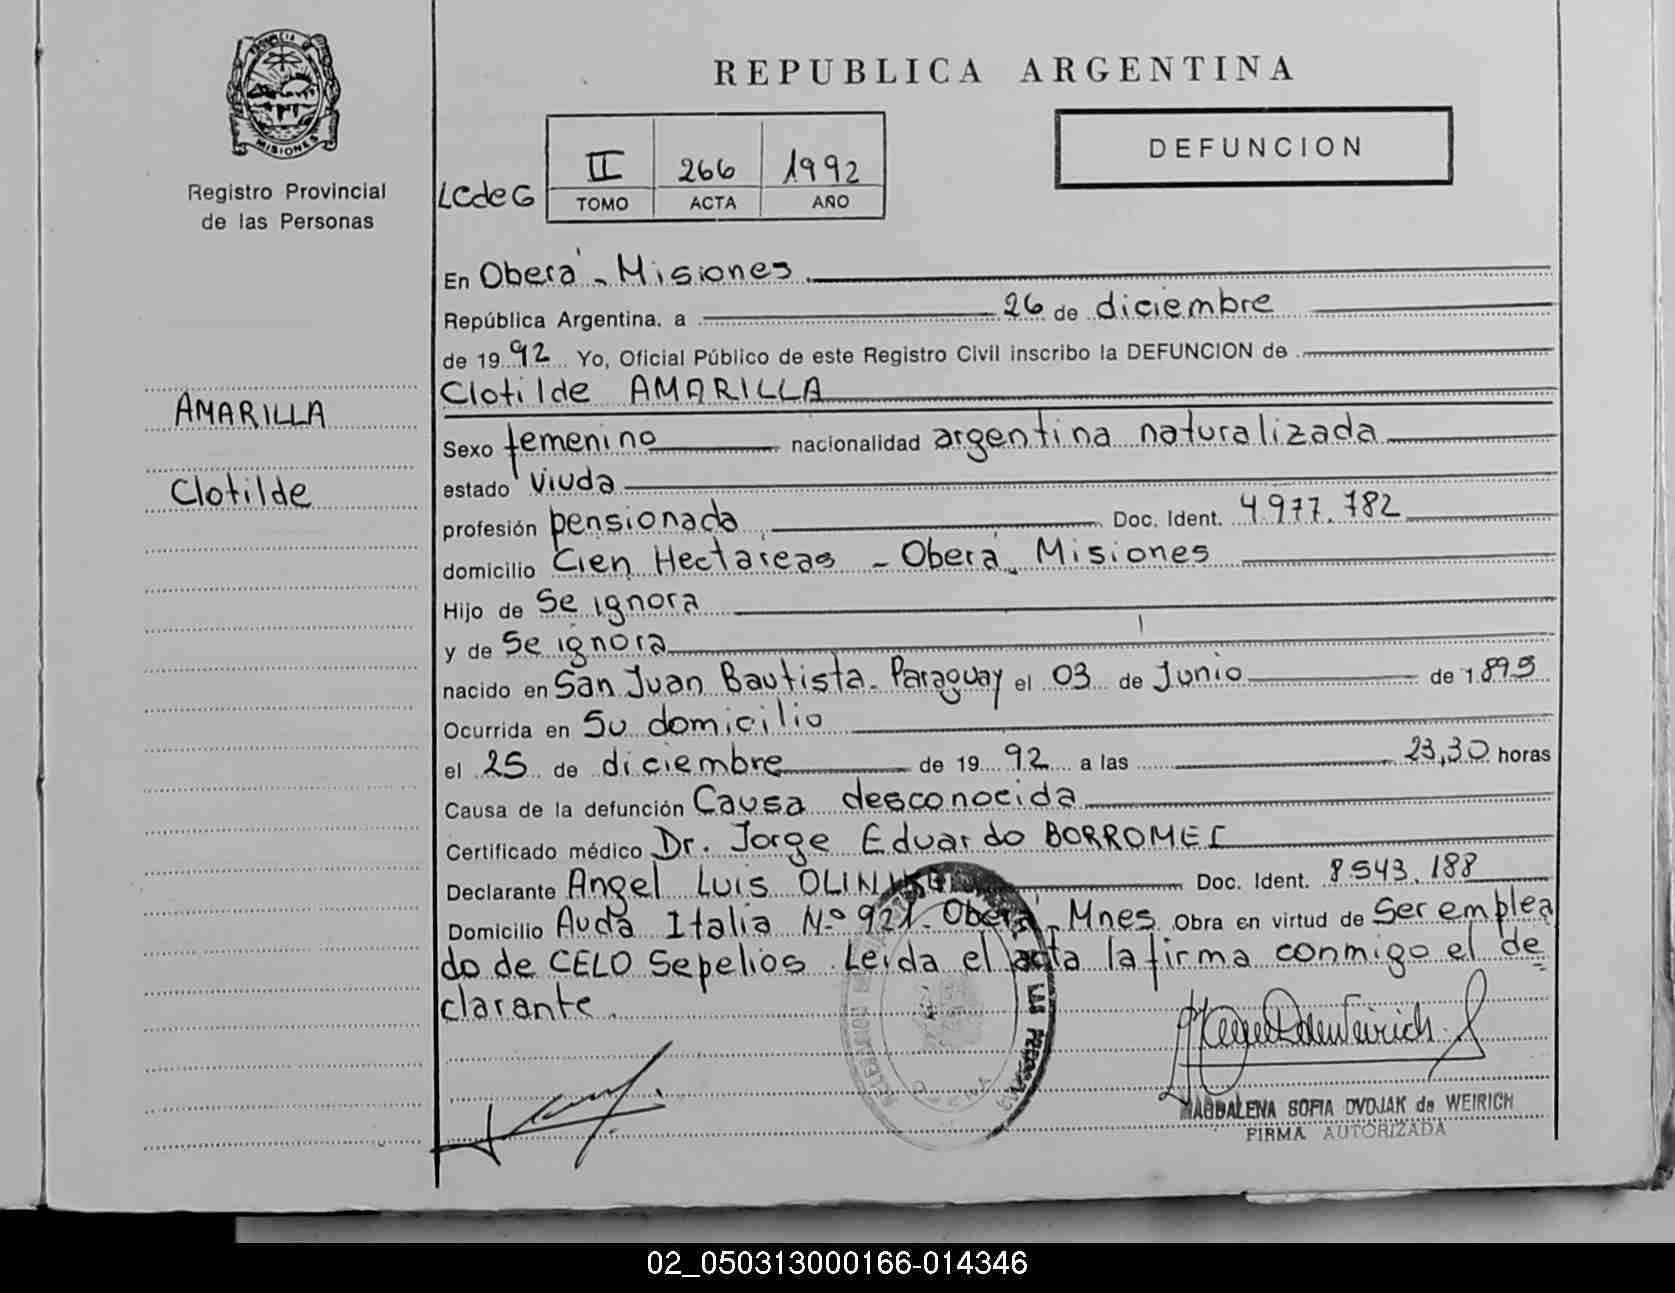 PROVINCIA D
MISIONES
Registro Provincial
de las Personas
REPUBLICA ARGENTINA
DEFUNCION
LCdeG
II 266 1992
TOMO ACTA AÑO
En Oberá - Misiones
República Argentina, a 26 de diciembre
de 1992 Yo, Oficial Público de este Registro Civil inscribo la DEFUNCION de
Clotilde AMARILLA
AMARILLA
Clotilde
Sexo femenino nacionalidad argentina naturalizada
estado Viuda
profesión pensionada Doc. Ident. 4.977.782
domicilio Cien Hectareas - Oberá - Misiones
Hijo de Se ignora
y de Se ignora
nacido en San Juan Bautista - Paraguay el 03 de Junio de 1.895
Ocurrida en Su domicilio
el 25 de diciembre de 1992 a las 23,30 horas
Causa de la defunción Causa desconocida
Certificado médico Dr. Jorge Eduardo BORROMEI
Declarante Angel Luis Doc. Ident. 8543.188
Domicilio Avda Italia Nº 921 - Oberá - Mnes Obra en virtud de Ser emplea
do de CELO Sepelios. Leida el acta la firma conmigo el de
clarante.
LAS
MAGDALENA SOFIA DVOJAK de WEIRICH
FIRMA AUTORIZADA
02_050313000166-014346